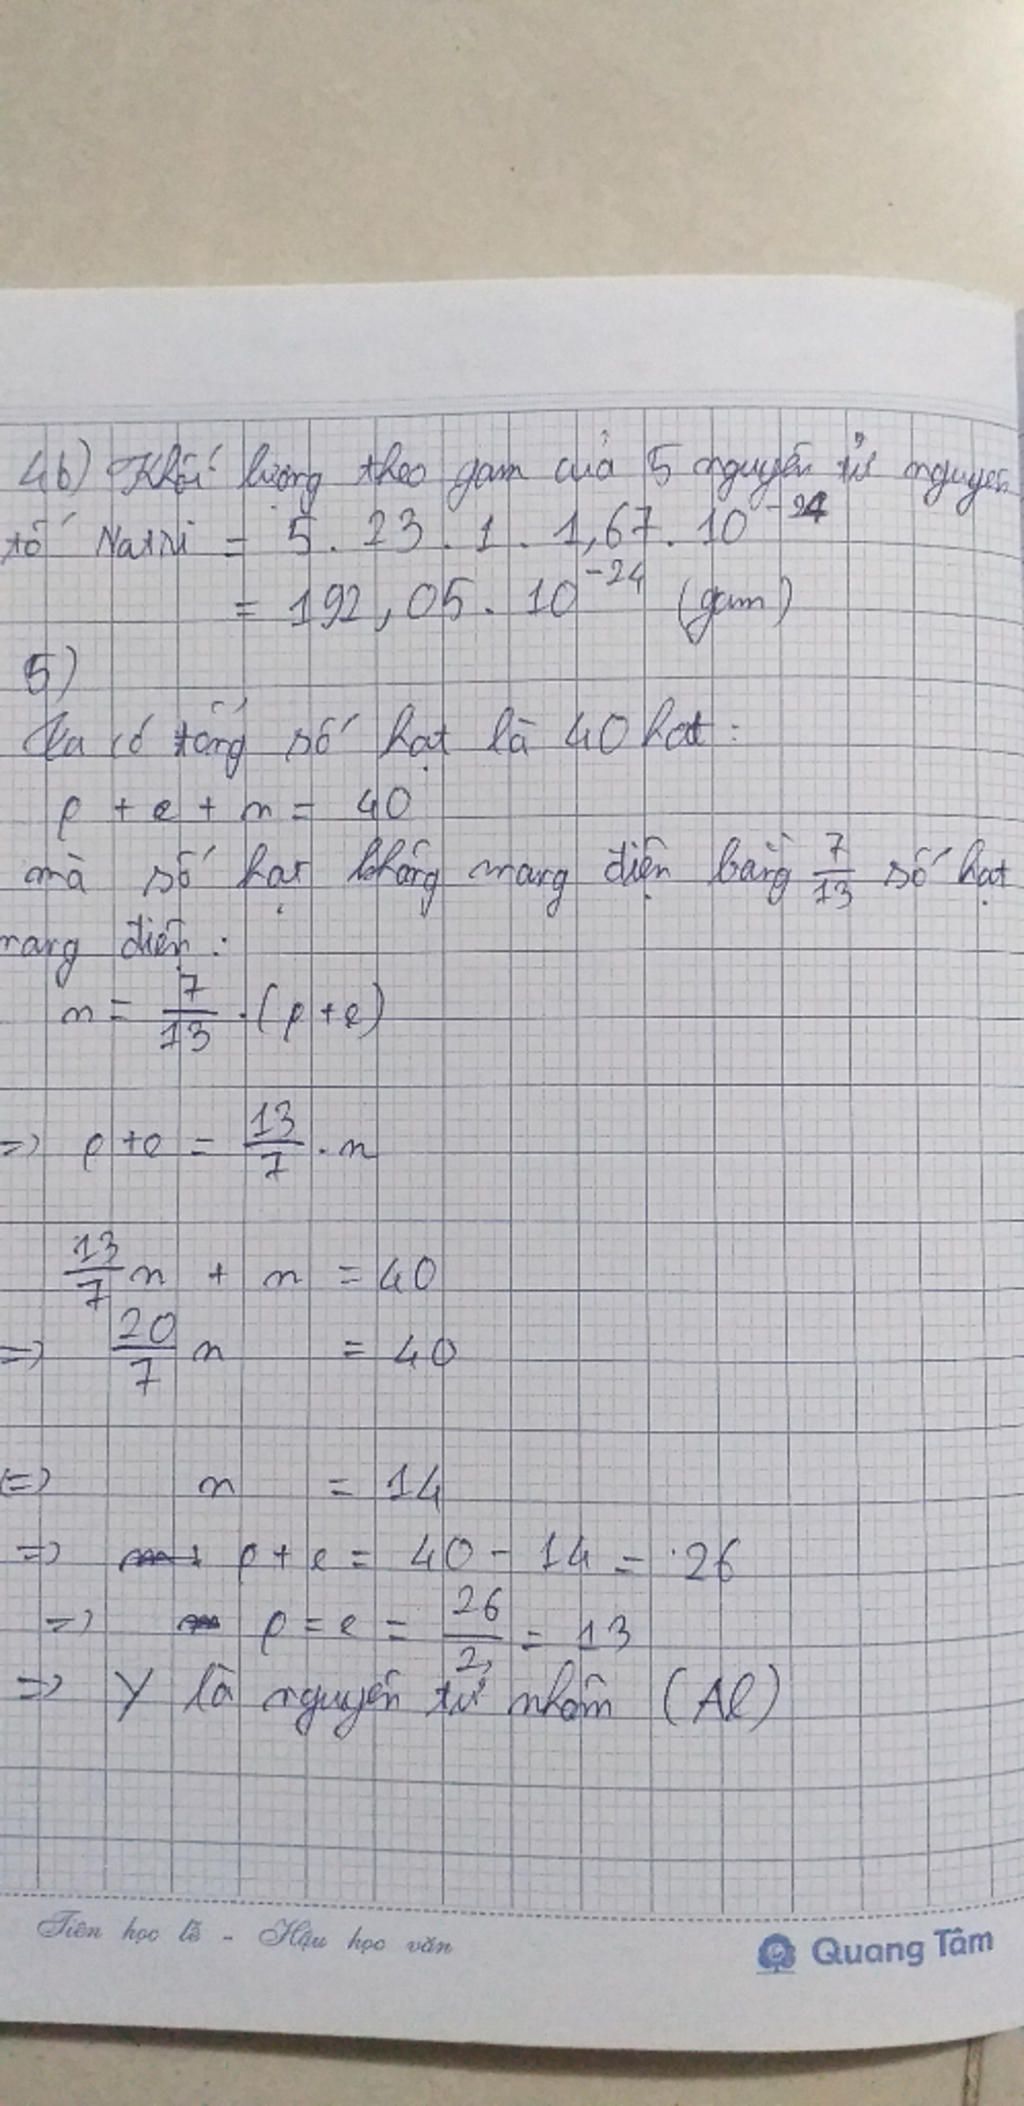 4b) Khối lượng theo gam của 5 nguyên tử nguyên
tố Natri = 5 . 23 . 1 . 1,67 . 10^-24
= 192,05 . 10^-24 (gam)
5)
Ta có tổng số hạt là 40 hạt :
p + e + n = 40
mà số hạt không mang điện bằng 7/13 số hạt
mang điện :
n = 7/13 . (p + e)
=> p + e = 13/7 . n
13/7 n + n = 40
=> 20/7 n = 40
(=) n = 14
=> p + e = 40 - 14 = 26
=> p = e = 26/2 = 13
=> Y là nguyên tử nhôm (Al)
Tiên học lễ - Hậu học văn
Quang Tâm